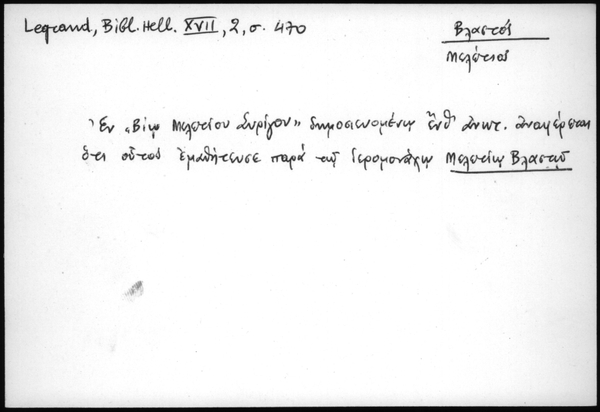 Legrand, Bibl. Hell. XVII, 2, σ. 470
Βλαστός
Μελέτιος
Ἐν „Βίῳ Μελετίου Συρίγου" δημοσιευομένῳ ἔνθ' ἀνωτ. ἀναφέρεται
ὅτι οὗτος ἐμαθήτευσε παρά τῷ Ἱερομονάχῳ Μελετίῳ Βλαστῷ